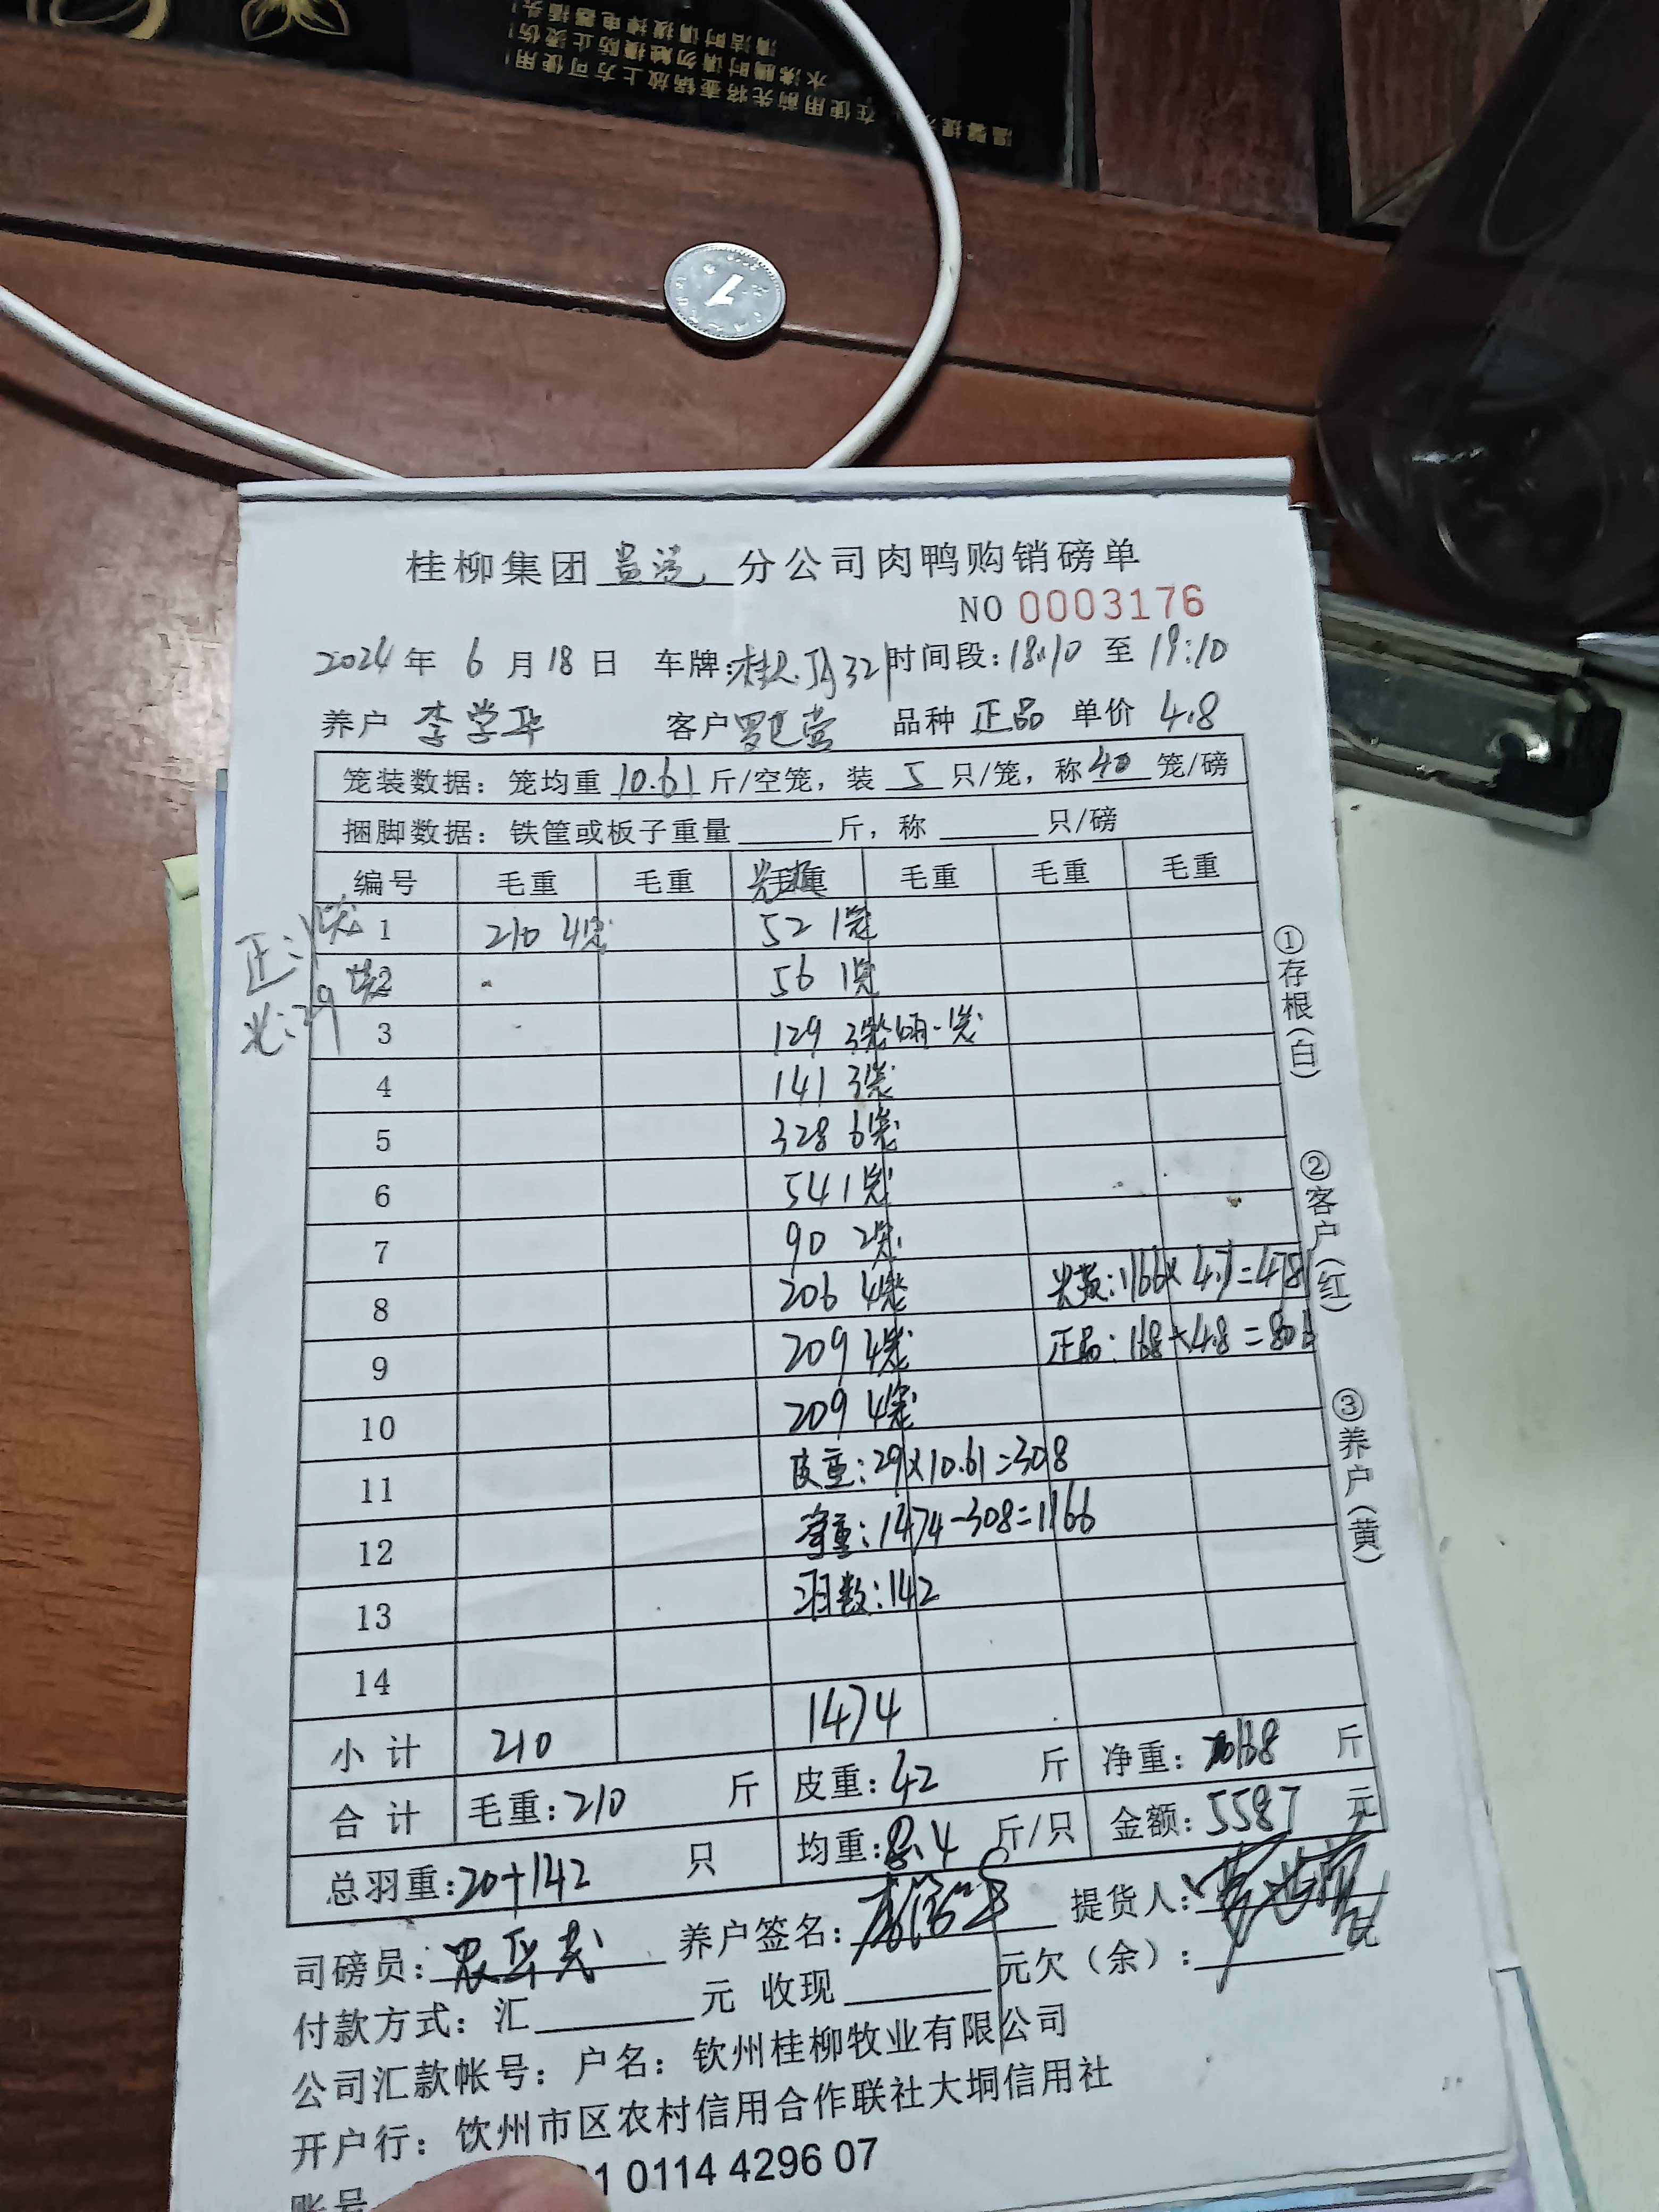 温馨提示
在使用前先将壶锅放上方可使用!
水沸腾时请勿触摸防止烫伤!
清洁时请拔掉电器插头!
1
桂柳集团 分公司肉鸭购销磅单
NO 0003176
2024 年 6 月 18 日 车牌: 321 时间段: 18:10 至 19:10
养户 李学华 客户 罗 营 品种 正品 单价 4.8
笼装数据: 笼均重 10.61 斤/空笼, 装 5 只/笼, 称 40 笼/磅
捆脚数据: 铁筐或板子重量 斤, 称 只/磅
编号 毛重 毛重 毛重 毛重 毛重 毛重
正: 
光:29
1 210 4笼 52 1笼
2 56 1笼
3 129 3笼 1笼
4 141 3笼
5 328 6笼
6 54 1笼
7 90 2笼
8 206 4笼 1166×4.1=4781
9 209 4笼 正品:168×4.8=806
10 209 4笼
11 皮重:29×10.61=308
12 净重:1474-308=1166
13 羽数:142
14
小计 210 1474
合计 毛重:210 斤 皮重:42 斤 净重:168 斤
总羽重:20+142 只 均重:8.4 斤/只 金额:5587 元
司磅员: 养户签名: 提货人:
付款方式: 汇 元 收现 元欠(余):
公司汇款帐号: 户名: 钦州桂柳牧业有限公司
开户行: 饮州市区农村信用合作联社大垌信用社
账号 1 0114 4296 07
①存根(白)
②客户(红)
③养户(黄)